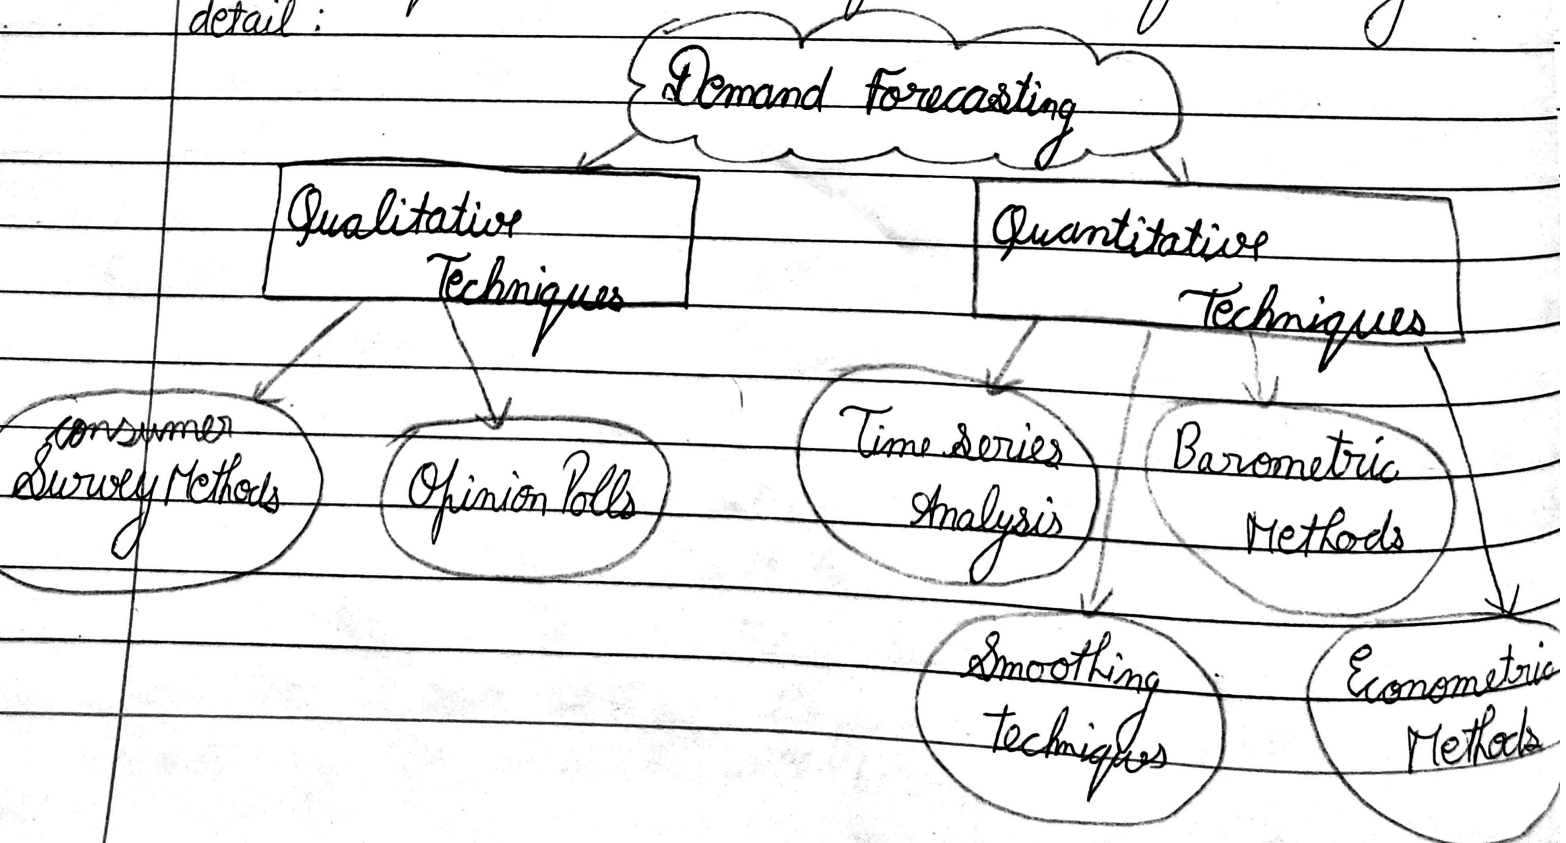 detail :
Demand Forecasting
Qualitative
Techniques
Quantitative
Techniques
consumer
Survey Methods
Opinion Polls
Time series
Analysis
Barometric
Methods
Smoothing
techniques
Econometric
Methods